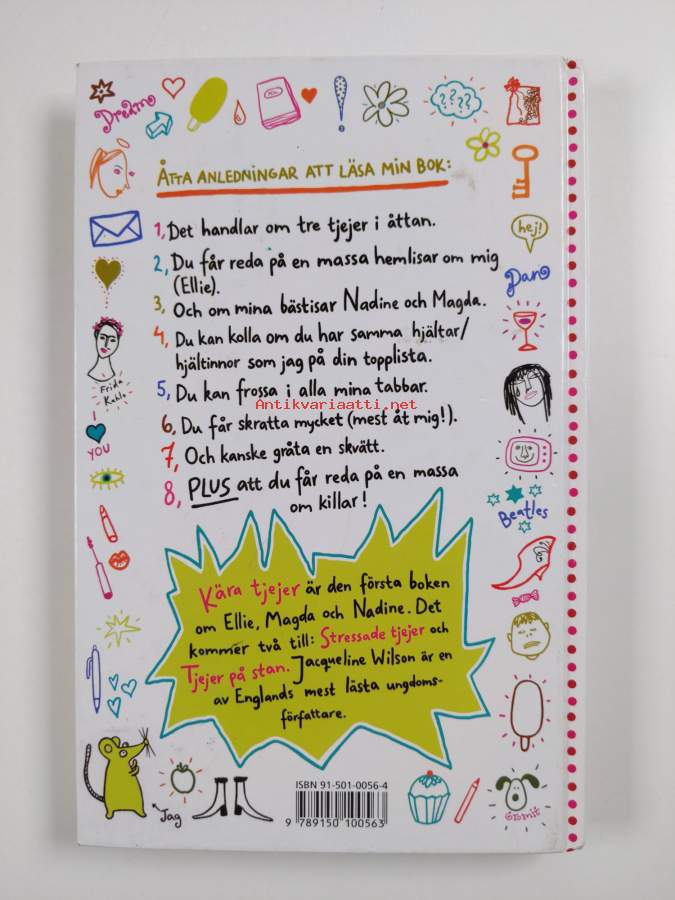 Dream
????
ÅTTA ANLEDNINGAR ATT LÄSA MIN BOK:
hej!
1, Det handlar om tre tjejer i åttan.
2, Du får reda på en massa hemlisar om mig
(Ellie).
Dan
3, Och om mina bästisar Nadine och Magda.
4, Du kan kolla om du har samma hjältar/
hjältinnor som jag på din topplista.
Frida
Kahlo
5, Du kan frossa i alla mina tabbar.
Antikvariaatti.net
6, Du får skratta mycket (mest åt mig!).
I
YOU
7, Och kanske gråta en skvätt.
8, PLUS att du får reda på en massa
om killar!
Beatles
Kära tjejer är den första boken
om Ellie, Magda och Nadine. Det
kommer två till: Stressade tjejer och
Tjejer på stan. Jacqueline Wilson är en
av Englands mest lästa ungdoms-
författare.
Jag
ISBN 91-501-0056-4
9 789150 100563
Gromit